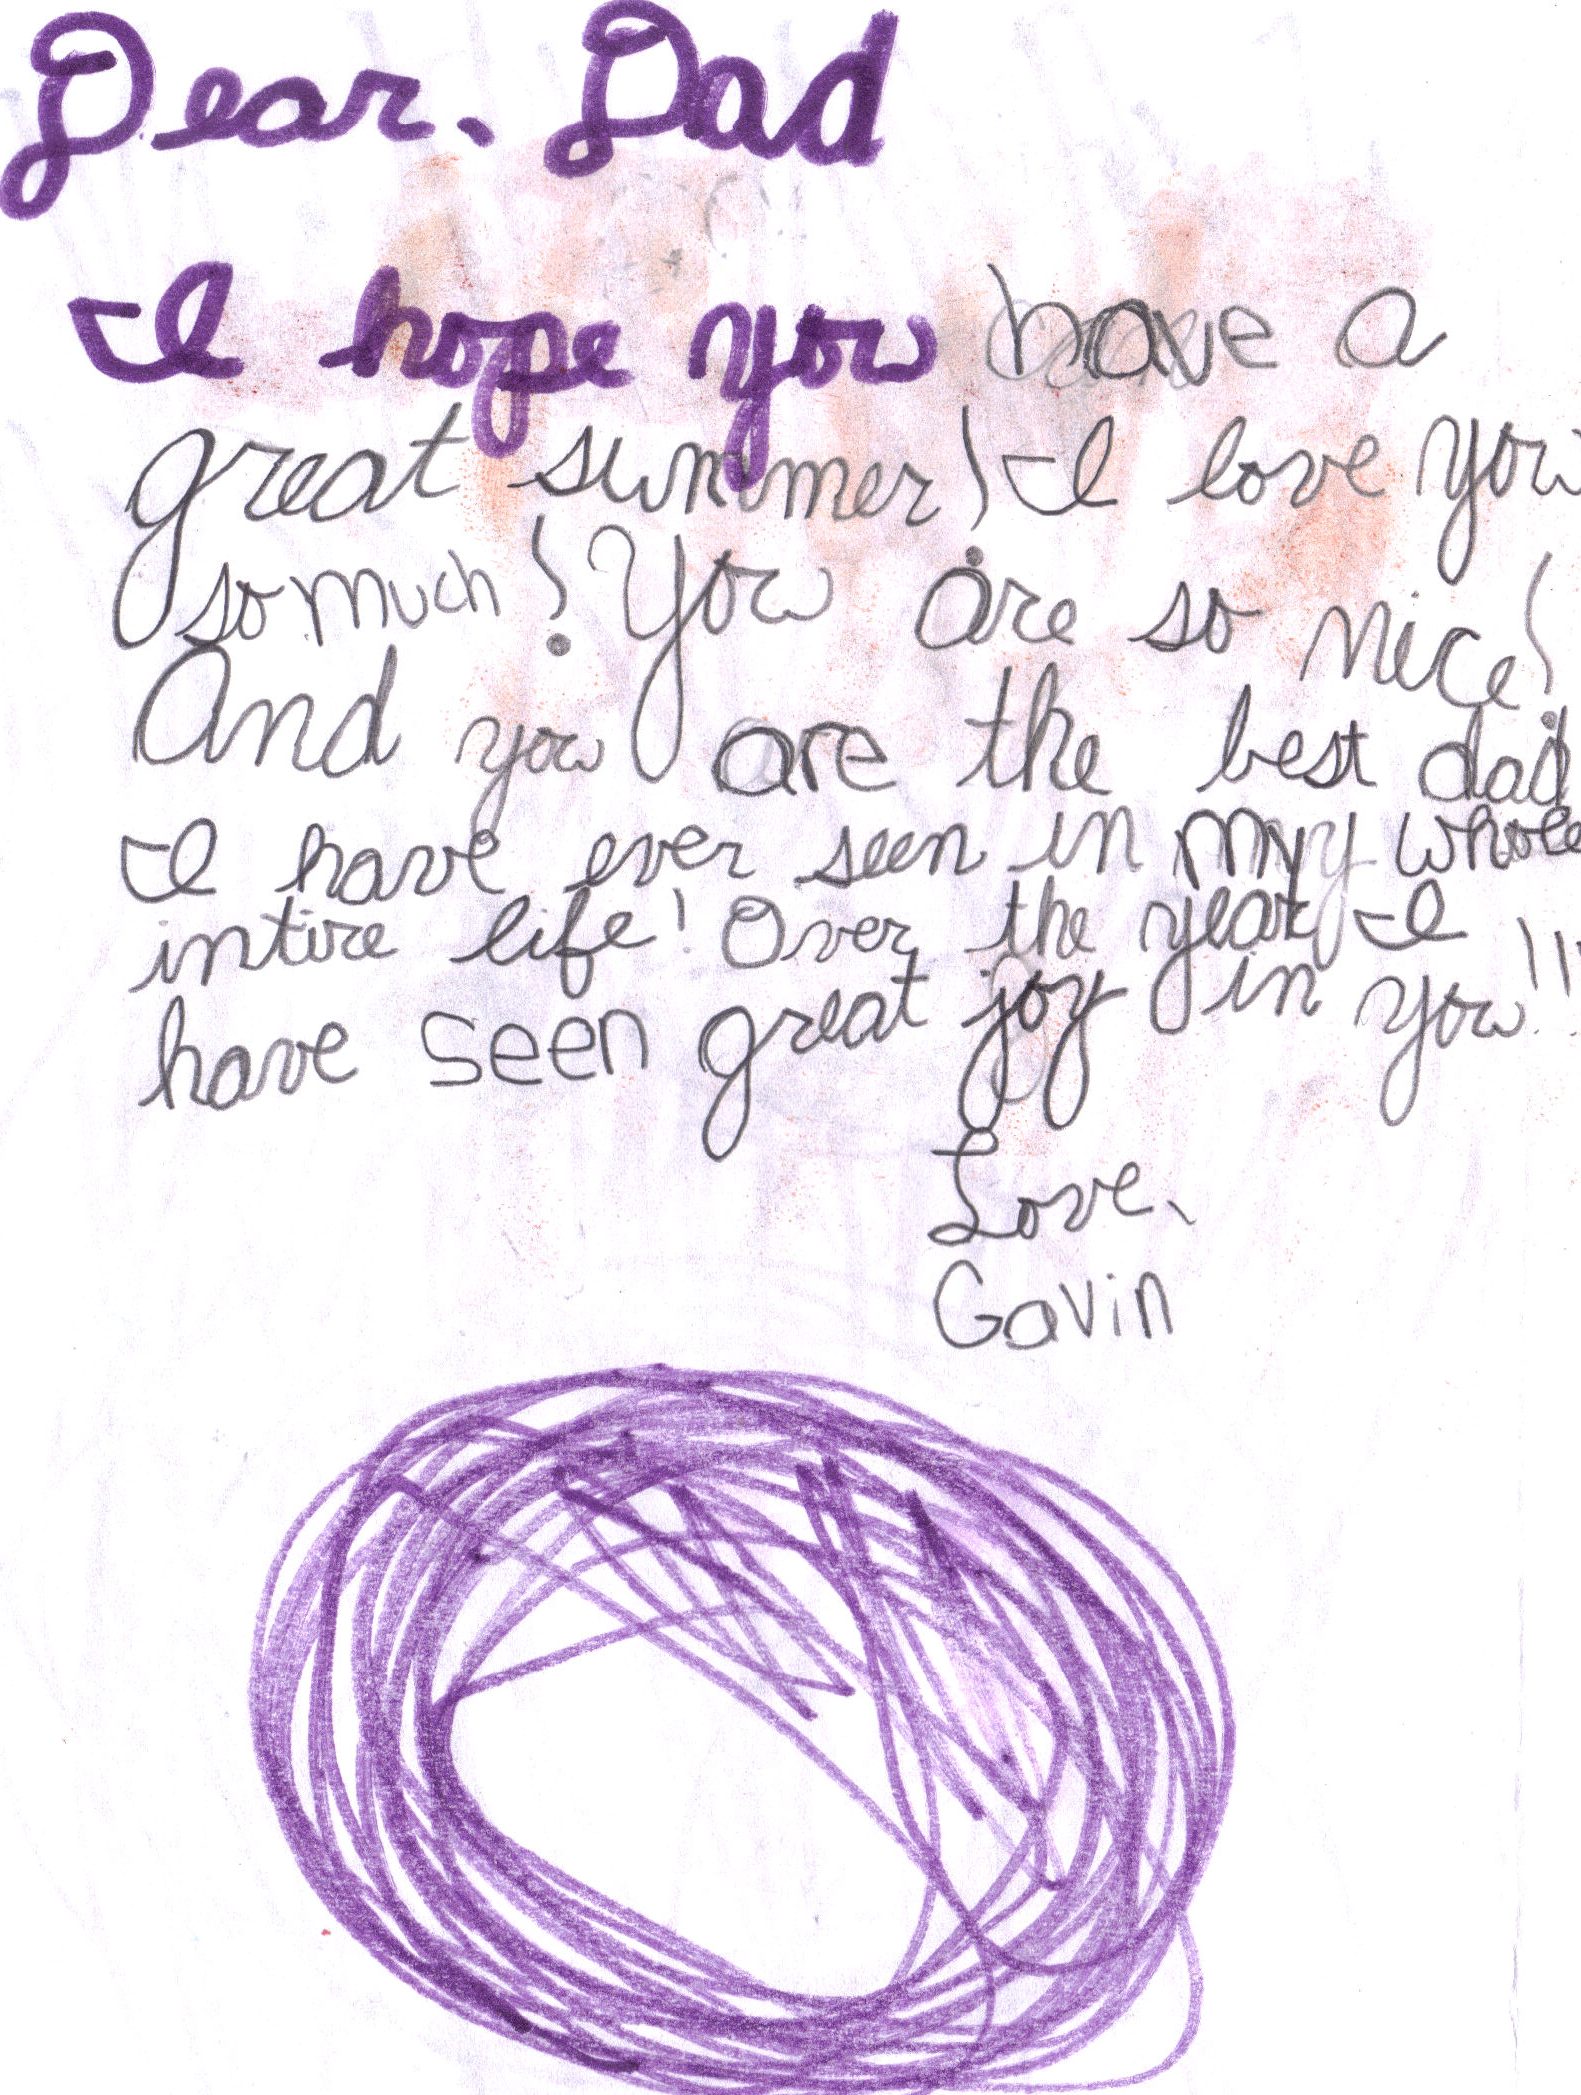 Dear, Dad
I hope you have a
great summer! I love you
so much! You are so nice!
And you are the best dad
I have ever seen in my whole
intire life! Over the year I
have seen great joy in you!!!
Love,
Gavin